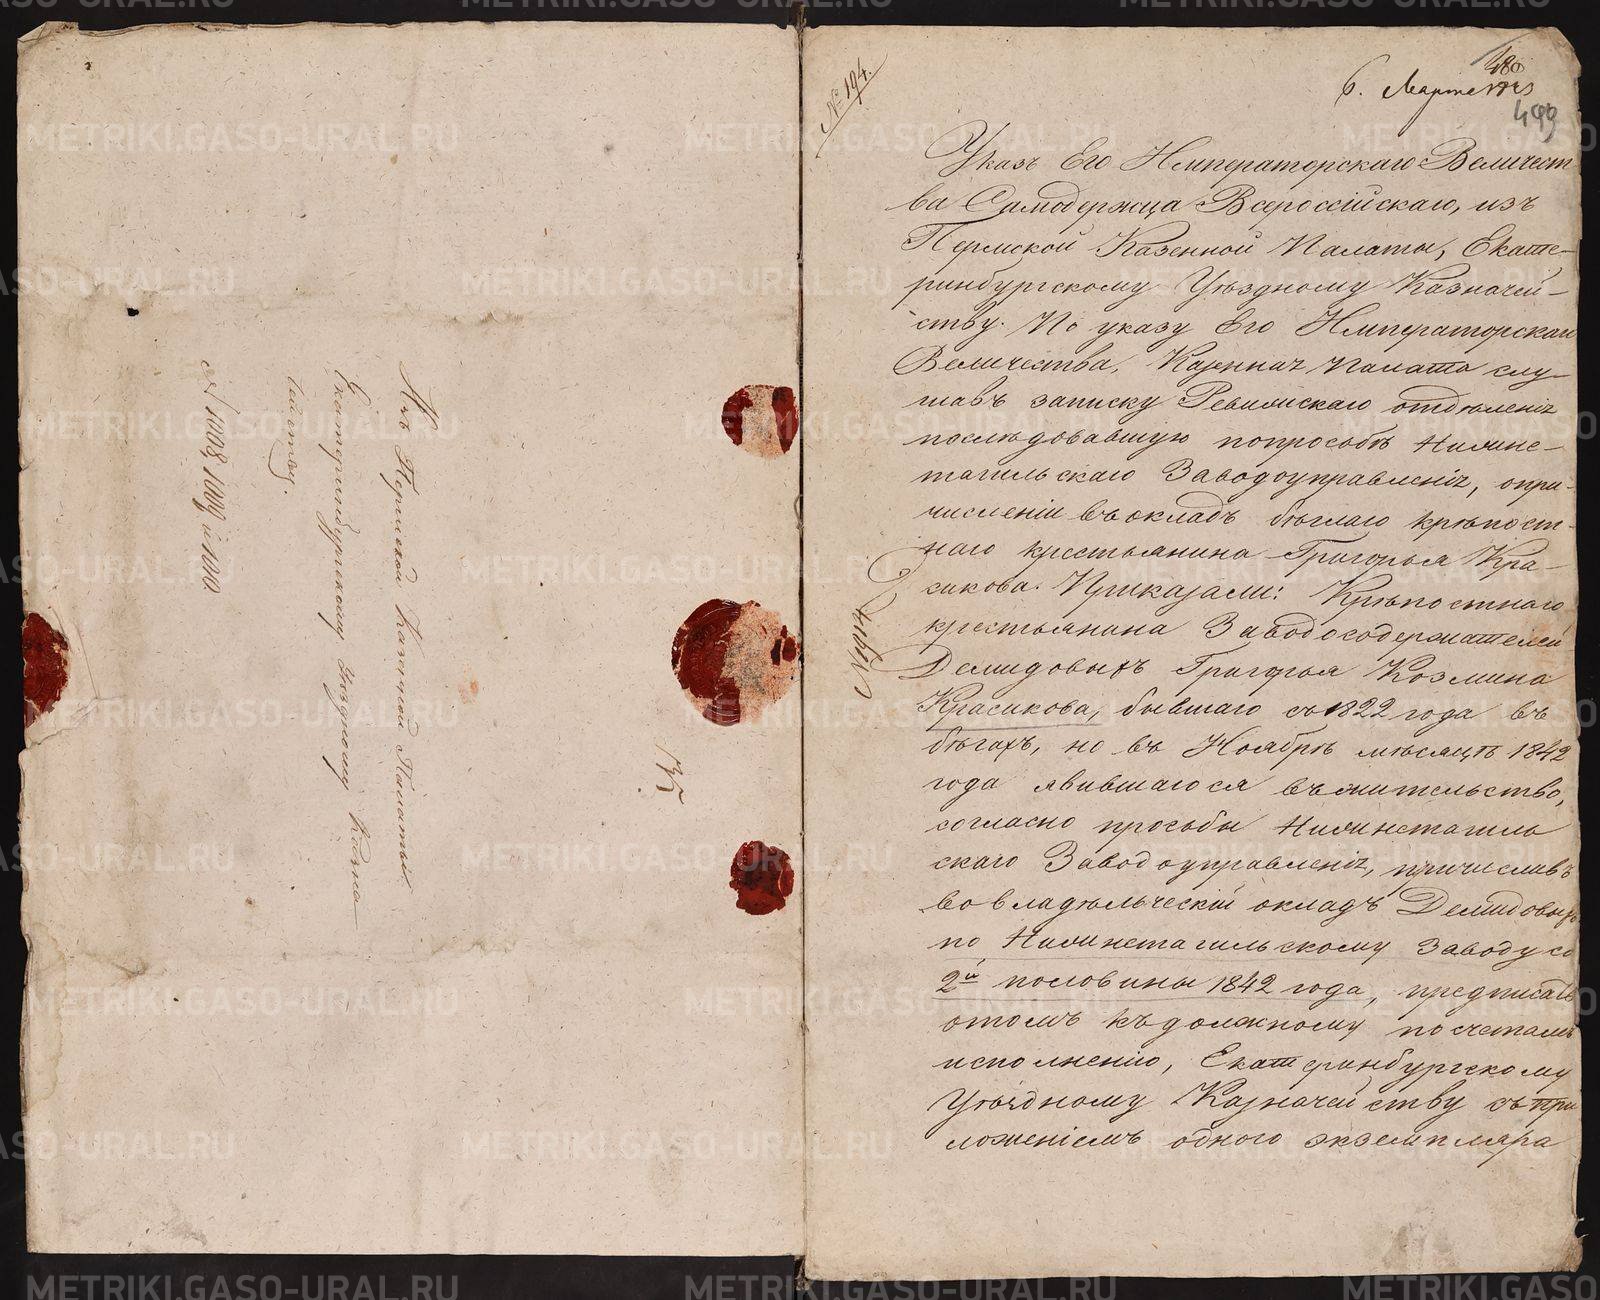 Изъ Пермской Казенной Палаты.
Екатеринбургскому Уѣздному Казна
чейству.
№ 194.
6. Марта 1843
480
499
Указъ Его Императорскаго Величест
ва Самодержца Всероссійскаго, изъ
Пермской Казенной Палаты, Екате-
ринбургскому Уѣздному Казначей-
ству. По указу Его Императорскаго
Величества, Казенная Палата слу-
шавъ записку Ревизскаго отдѣленія
послѣдовавшую попрозбѣ Нижне-
тагильскаго Заводоуправленія, опри-
численіи въ окладъ бѣглаго крѣпост-
наго крестьянина Григорья Кра-
сикова. Приказали: Крѣпостнаго
крестьянина Заводосодержателей
Демидовыхъ Григорья Козмина
Красикова, бывшаго съ 1822 года въ
бѣгахъ, но въ Ноябрѣ мѣсяцѣ 1842
года явившагося въ жительство,
согласно прозьбы Нижнетагиль
скаго Заводоуправленія, причисливъ
во владѣльческій окладъ Демидовыхъ
по Нижнетагильскому Заводу со
2й половины 1842 года, предписать
отомъ къ должному по счетамъ
исполненію, Екатеринбургскому
Уѣздному Казначейству съ при
ложеніемъ одного экземпляра
METRIKI.GASO-URAL.RU